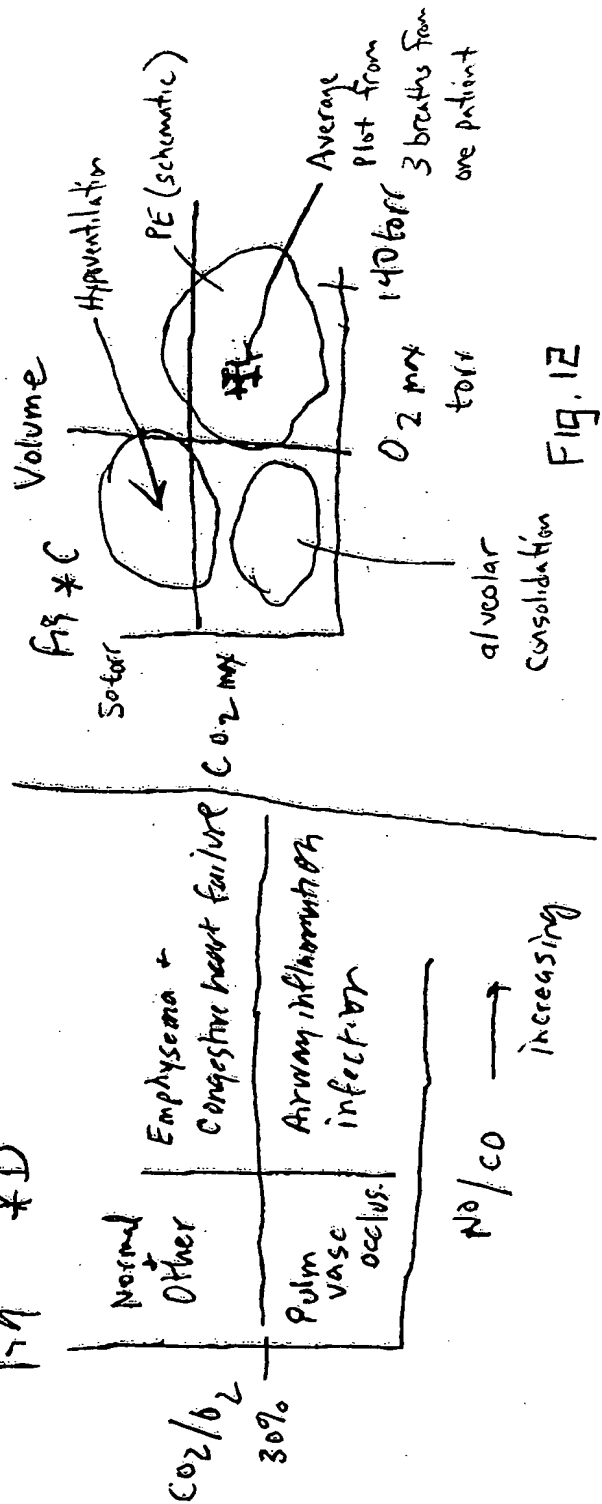 Fig *D
CO2/O2
30%
Normal
+
Other
Emphysema +
Congestive heart failure
Pulm
vasc
occlus.
Airway inflammation
infection
NO/CO →
increasing
Fig *C
Volume
50torr
CO2 max
Hypoventilation
PE (schematic)
Average
Plot from
3 breaths from
one patient
140torr
O2 max
torr
alveolar
consolidation
Fig. 12